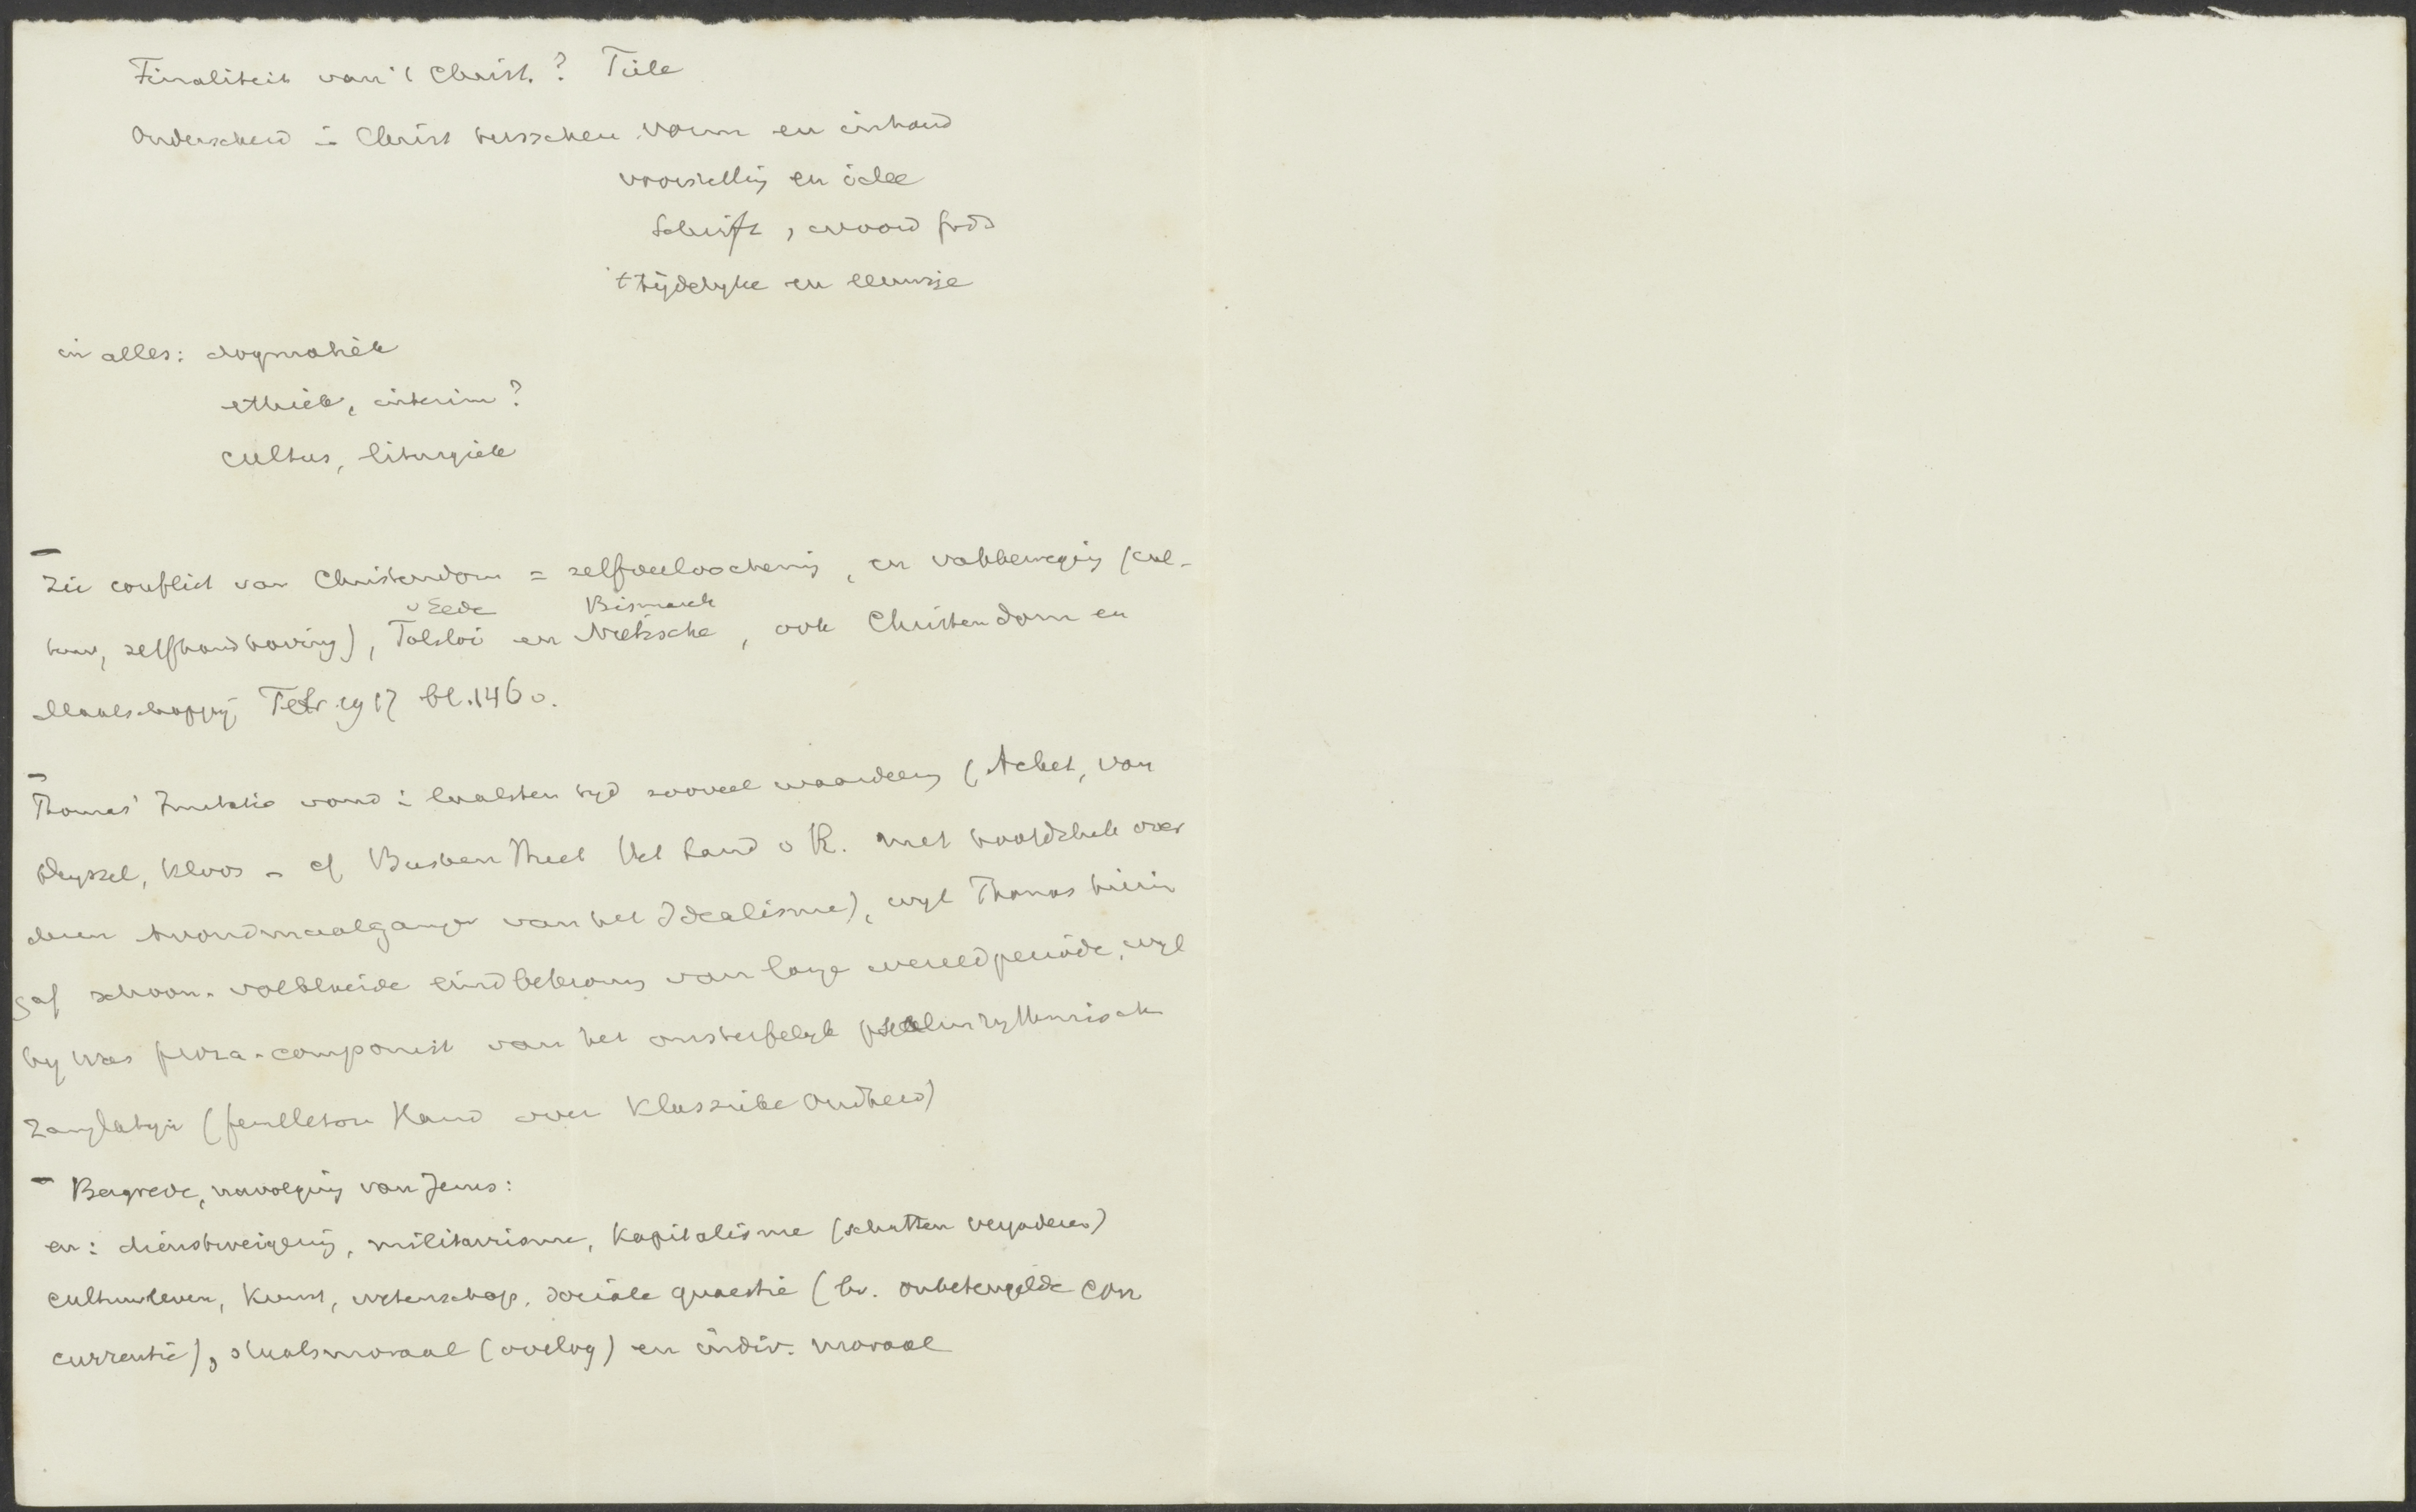 Finaliteit van 't Christ.? Tiele
Onderscheid in Christ tusschen vorm en inhoud
voorstelling en idee
Schrift, woord Gods
't tijdelyke en eeuwige
in alles: dogmatiek
ethiek, interim?
cultus, liturgiek
Zie conflict van Christendom = zelfverloochening, en vakbeweging (cul-
v Eede Bismarck
tuur, zelfhandhaving), Tolstoi en Nietzsche, ook Christendom en
Maatschappij Febr. 1917 bl. 146 v.
Thomas' Imitatio vond in laatsten tyd zooveel waardeering (Acket, van
Deyssel, Kloos - cf Busken Huet Het Land v R. met hoofdstuk over
dezen Avondmaalganger van het Idealisme), wyl Thomas hierin
gaf schoon-volbloeide eindbekroning van lange wereldperiode, wyl
hy was proza-componist van het onsterfelyk psalmrythmisch
Zanglatyn (feuilleton Hand over Klassieke Oudheid)
Bergrede, navolging van Jezus:
en: dienstweigering, militarisme, Kapitalisme (schatten vergaderen)
cultuurleven, Kunst, wetenschap, sociale quaestie (bv. onbeteugelde con
currentie), staatsmoraal (oorlog) en indiv. moraal